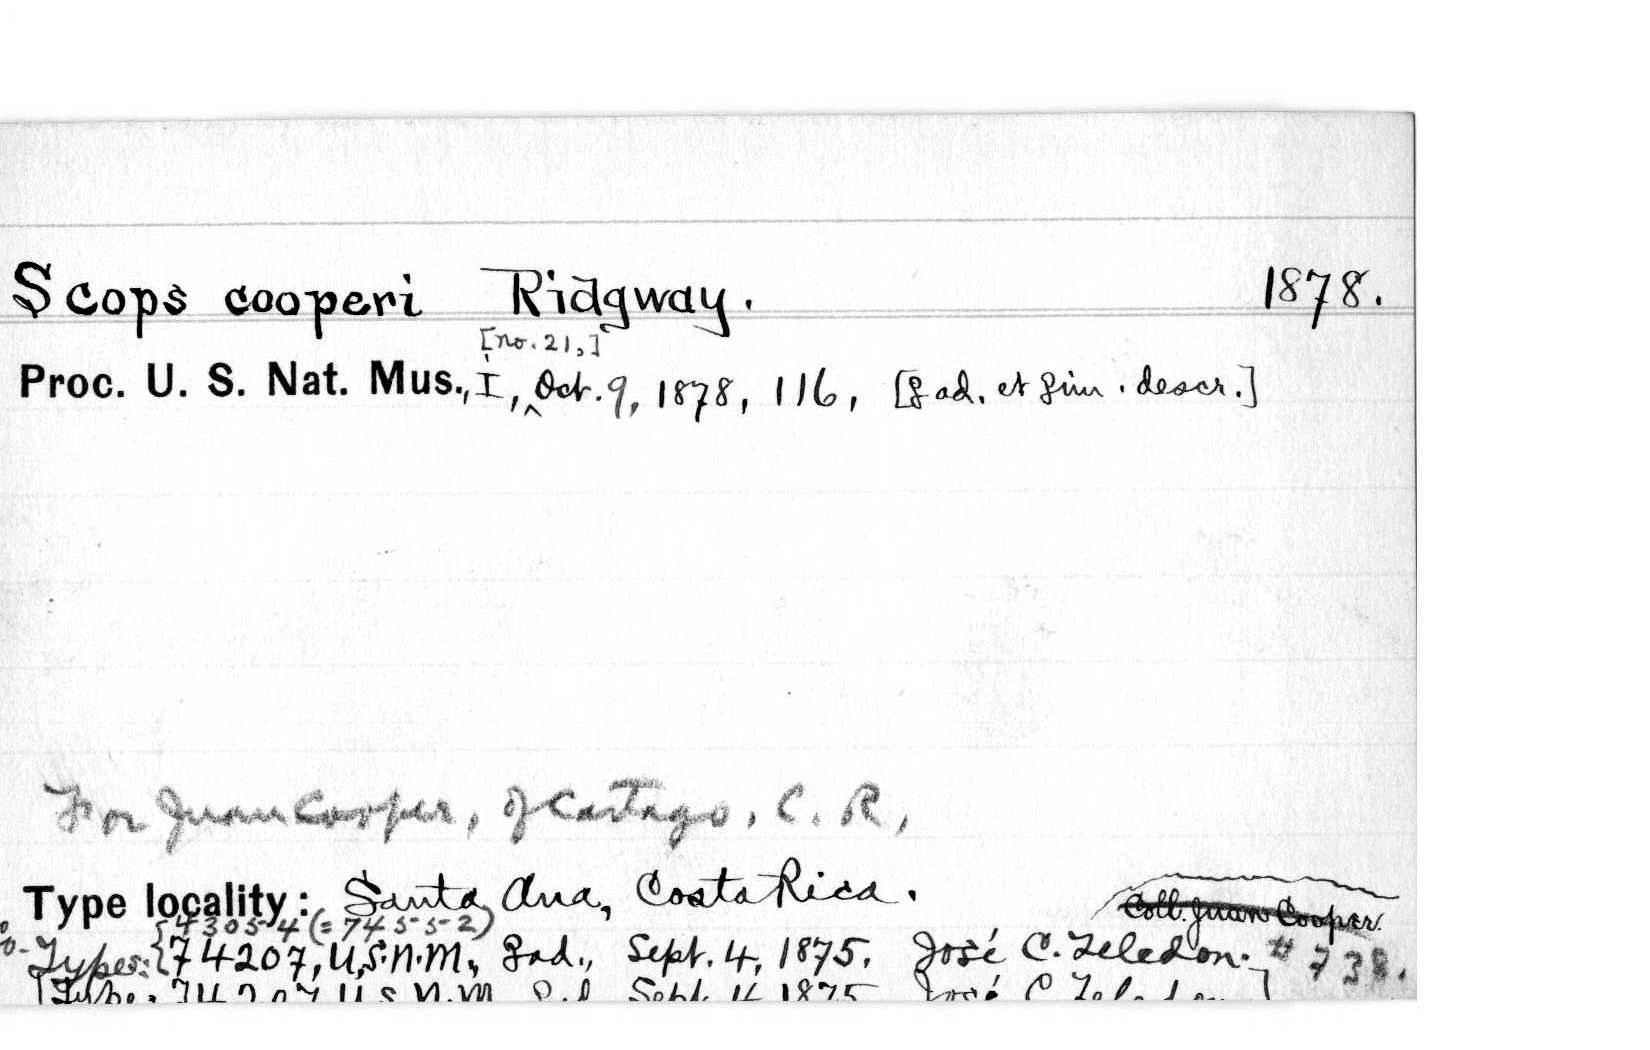 Scops cooperi Ridgway. 1878.
[no. 21,]
Proc. U. S. Nat. Mus., I, Oct. 9, 1878, 116, [♀ad. et ♀im. descr.]
For Juan Cooper, of Cartago, C. R,
Type locality: Santa Ana, Costa Rica.
Coll. Juan Cooper.
43054 (=74552)
Types: {74207, U.S.N.M., ♀ad., Sept. 4, 1875. José C. Zeledon. # 738.
[Type. 74207 U S N M ♀ad Sept. 4 1875 José C Zeledon]